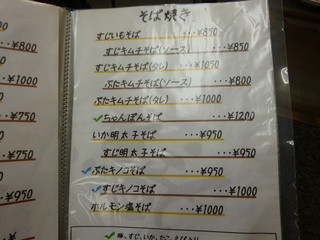 そば焼き
すじいもそば ・・・¥850
すじキムチそば(ソース) ・・・¥850
すじキムチそば(タレ) ・・・¥1050
ぶたキムチそば(ソース) ・・・¥800
ぶたキムチそば(タレ) ・・・¥1000
✓ちゃんぽんそば ・・・¥1200
いか明太子そば ・・・¥950
すじ明太子そば ・・・¥950
✓ぶたキノコそば ・・・¥950
✓すじキノコそば ・・・¥1000
ホルモン塩そば ・・・¥1000
¥800
・・・¥900
¥1000
・・¥750
・・・¥750
・・・¥950